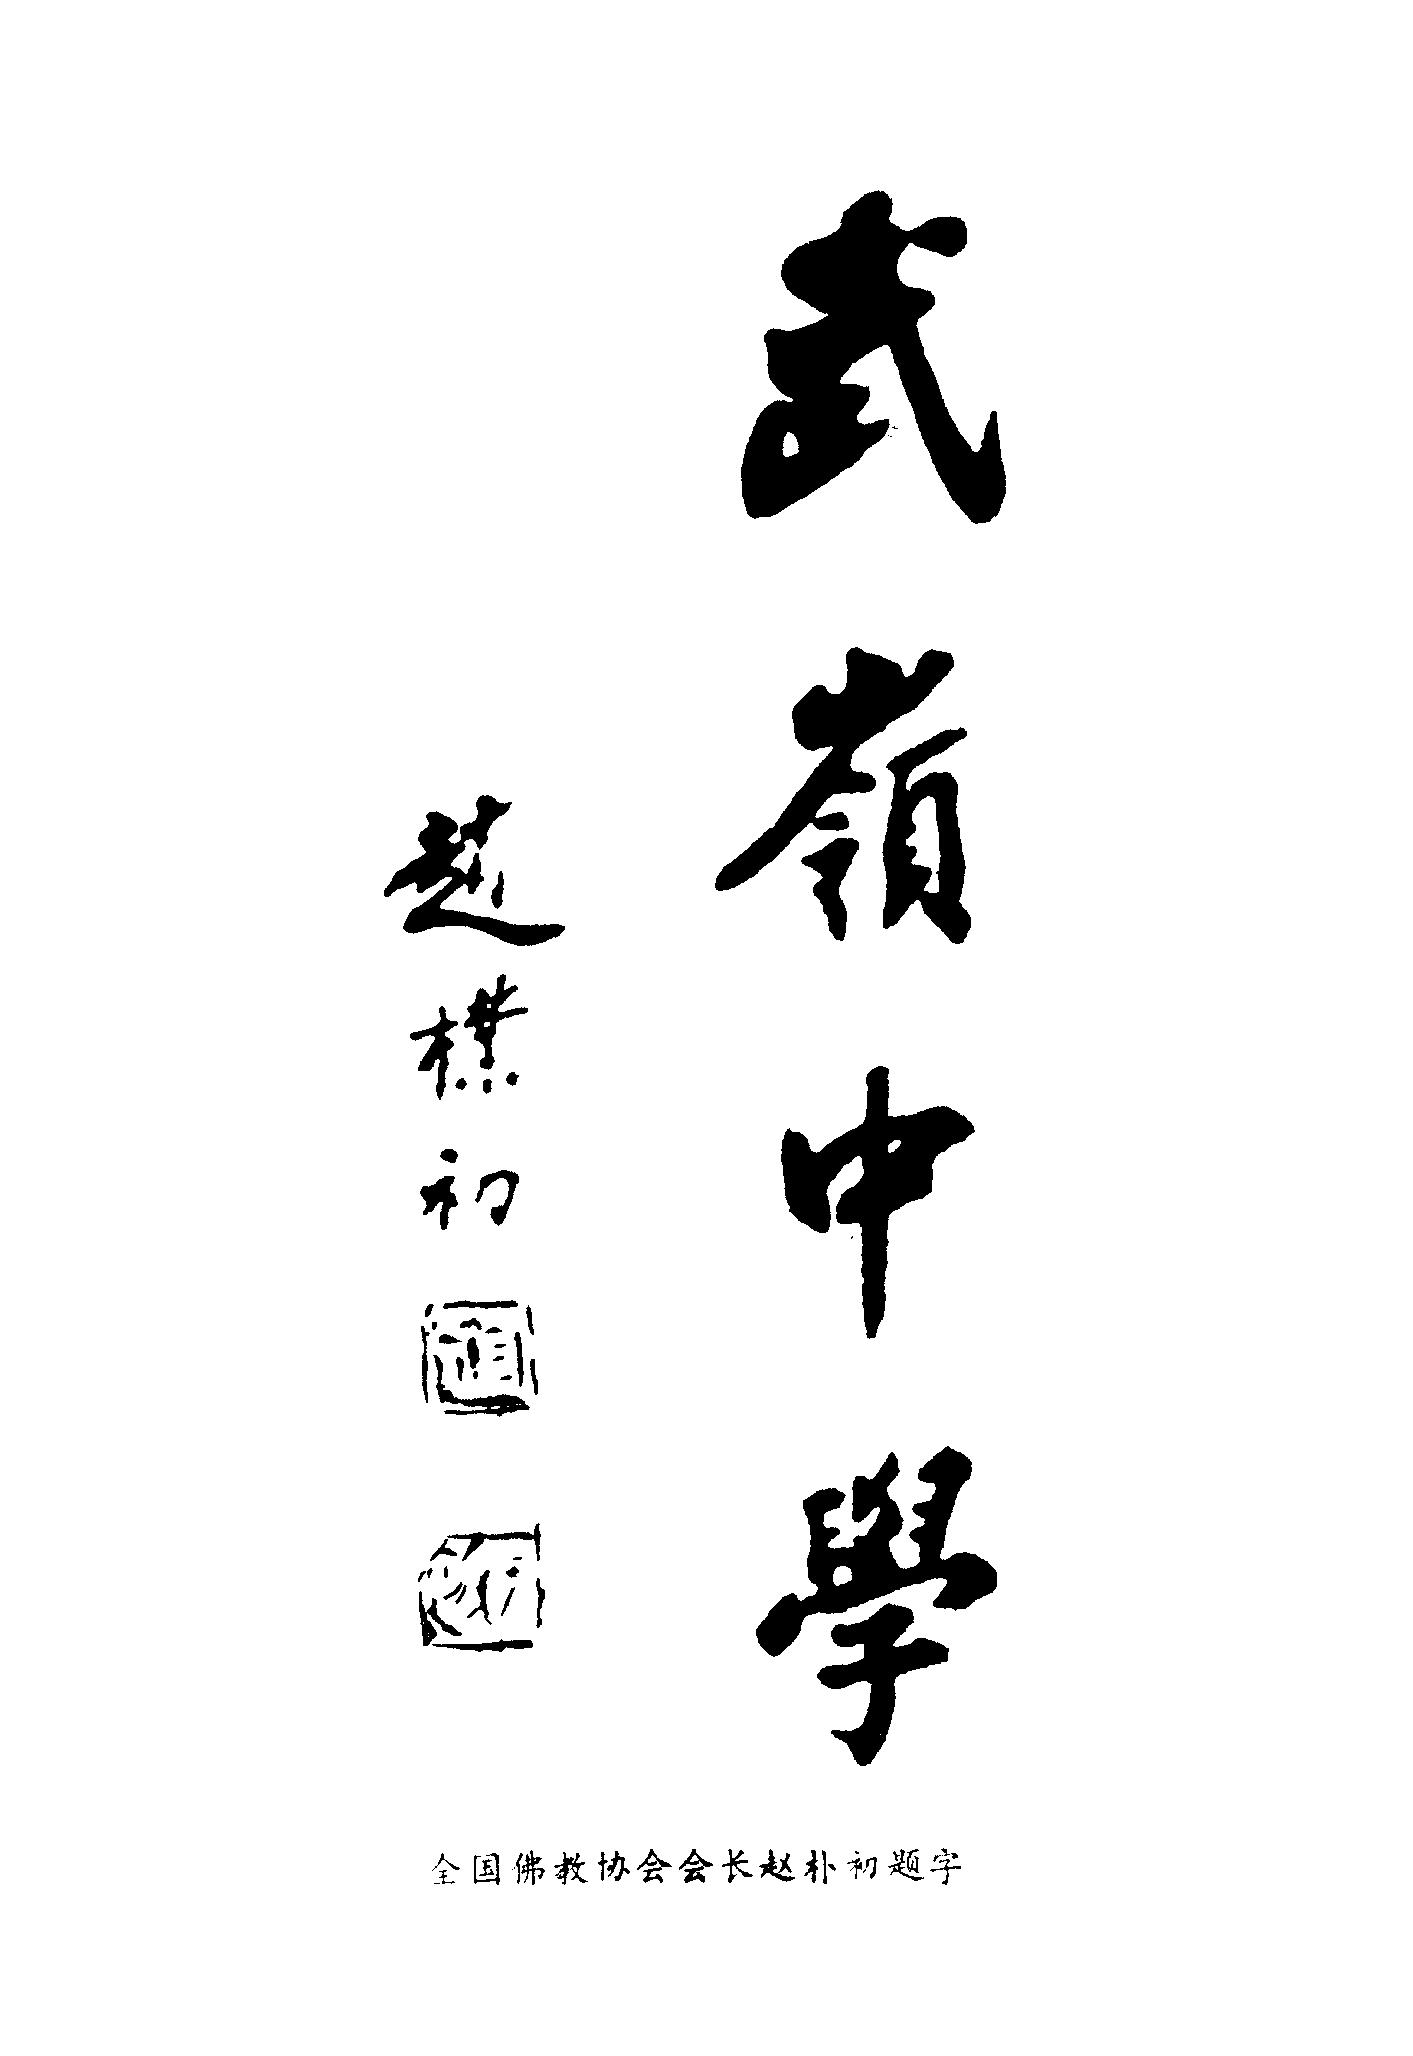 武嶺中學
趙樸初
全国佛教协会会长赵朴初题字